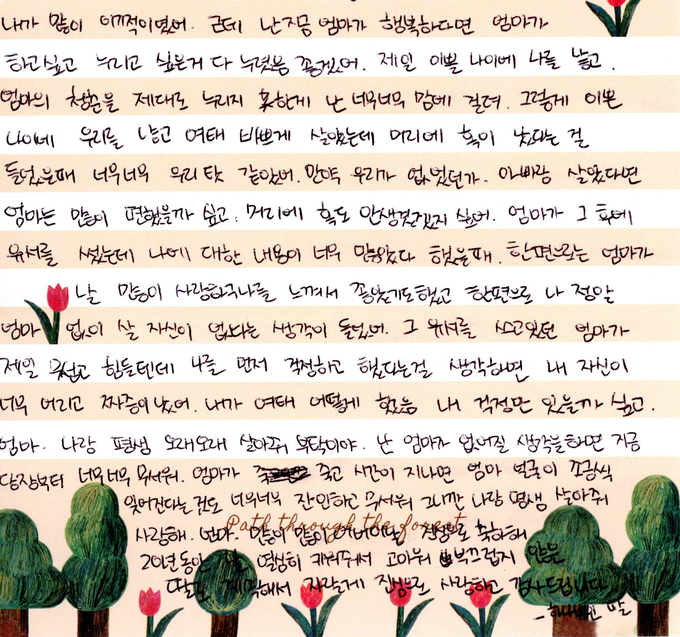 나가 많이 이기적이였어. 근데 난 지금 엄마가 행복하다면 엄마가
하고싶고 누리고 싶은거 다 누렸음 좋겠어. 제일 이쁠 나이에 나를 낳고.
엄마의 청춘을 제대로 누리지 못한게 난 너무너무 맘에 걸려. 그렇게 이쁜
나이에 우리를 낳고 여태 바쁘게 살았는데 머리에 혹이 났다는 걸
들었을때 너무너무 우리 탓 같았어. 만약 우리가 없었던가. 아빠랑 살았다면
엄마는 많이 편했을까 싶고. 머리에 혹도 안생겼겠지 싶어. 엄마가 그 후에
유서를 썼는데 나에 대한 내용이 너무 많았다 했을때. 한편으로는 엄마가
날 많이 사랑하구나를 느껴서 좋았기도했고 한편으로 나 정말
엄마 없이 살 자신이 없다는 생각이 들었어. 그 유서를 쓰고있던 엄마가
제일 무섭고 힘들텐데 나를 먼저 걱정하고 했다는걸 생각하면 내 자신이
너무 어리고 짜증이 났어. 내가 여태 어떻게 했음 내 걱정만 있을까 싶고.
엄마. 나랑 평생 오래오래 살아줘 부탁이야. 난 엄마가 없어질 생각을하면 지금
당장부터 너무너무 무서워. 엄마가 죽고 시간이 지나면 엄마 얼굴이 조금씩
잊어간다는 것도 너무너무 잔인하고 무서워 그니까 나랑 평생 살아줘
Path through the forest
사랑해. 엄마. 많이 많이 진심으로 축하해
20년동안 열심히 키워줘서 고마워 부끄럽지 않은
딸로 자랄게 진심으로 사랑하고 감사드립니다
딸